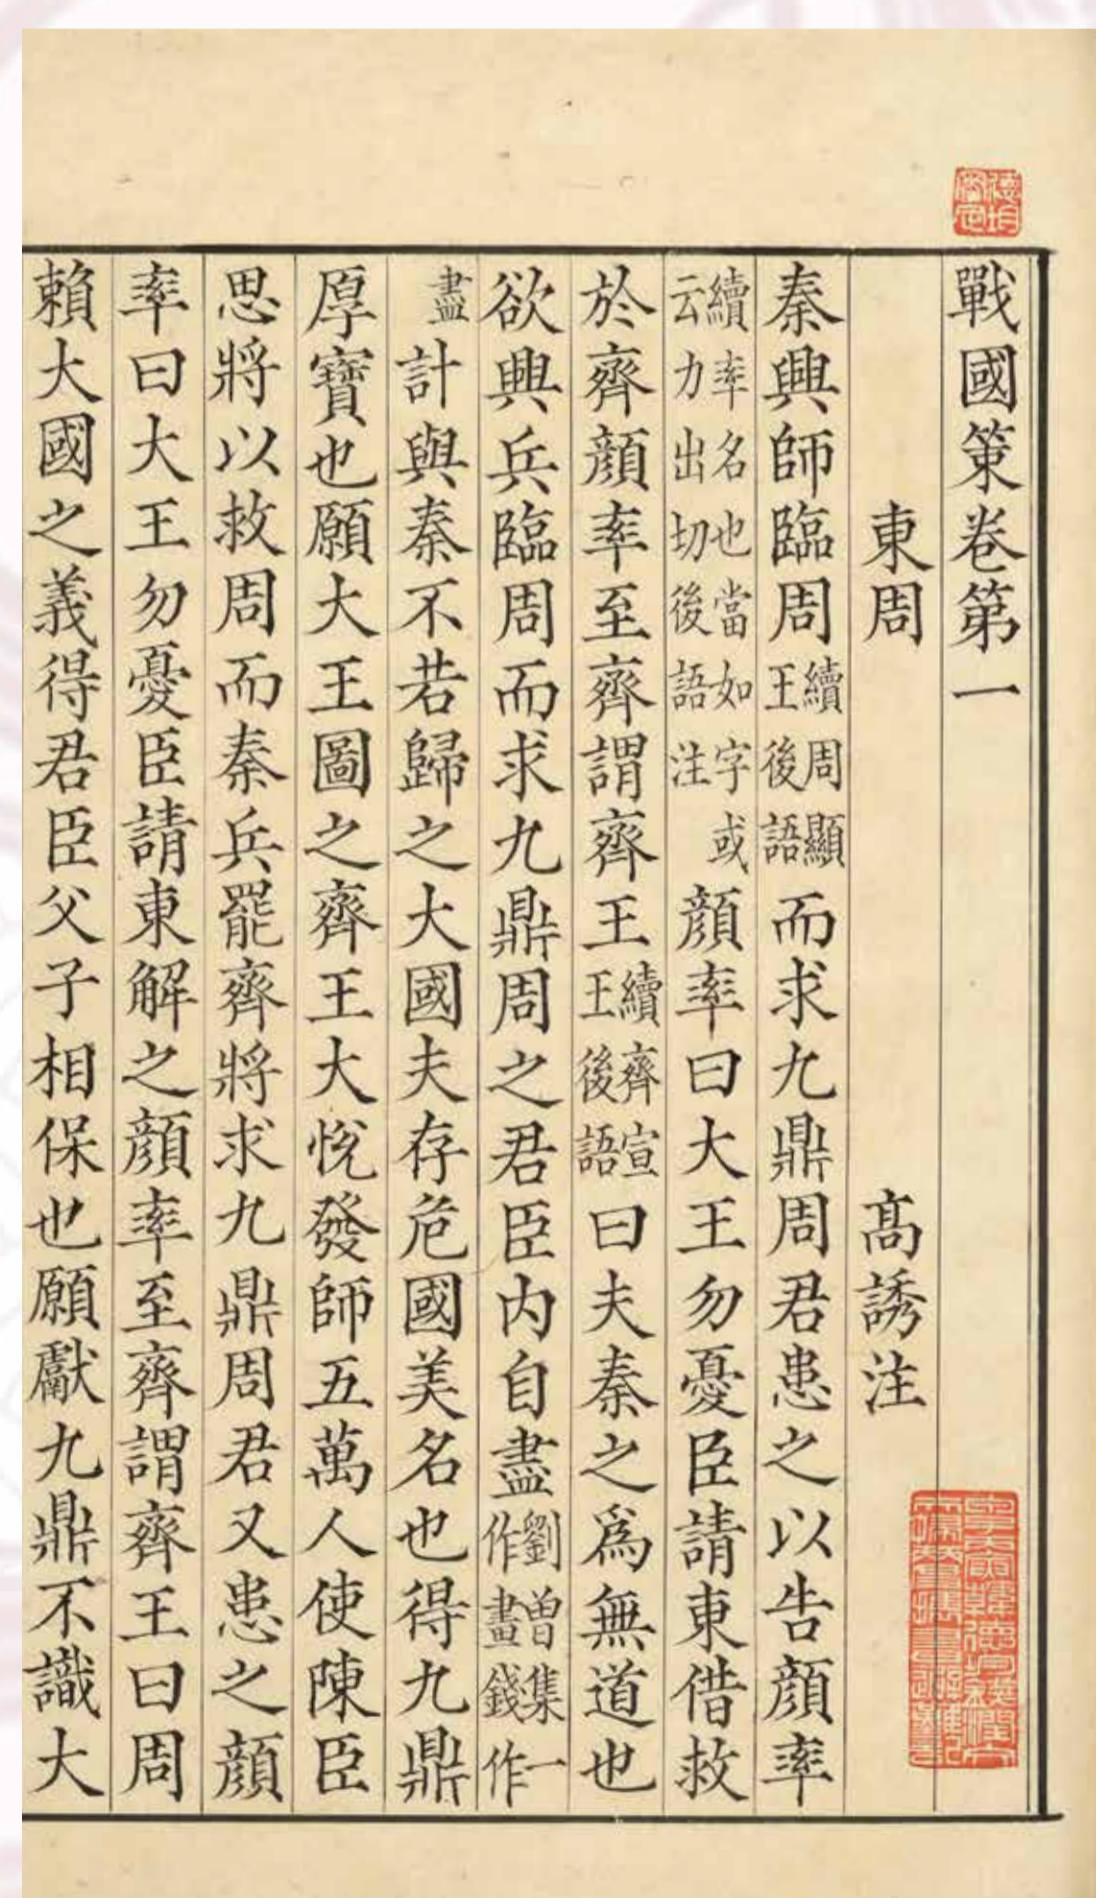 戰國策卷第一
東周 高誘注
秦興師臨周續周顯王後語而求九鼎周君患之以告顏率
續率名也當如字或云力出切後語注顏率曰大王勿憂臣請東借救
於齊顏率至齊謂齊王續齊宣王後語曰夫秦之爲無道也
欲興兵臨周而求九鼎周之君臣内自盡劉曾集一作畫錢作
盡計與秦不若歸之大國夫存危國美名也得九鼎
厚寶也願大王圖之齊王大悅發師五萬人使陳臣
思將以救周而秦兵罷齊將求九鼎周君又患之顏
率曰大王勿憂臣請東解之顏率至齊謂齊王曰周
賴大國之義得君臣父子相保也願獻九鼎不識大